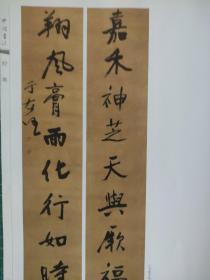 嘉禾神芝天與厥福
翔風膏雨化行如時
于右任